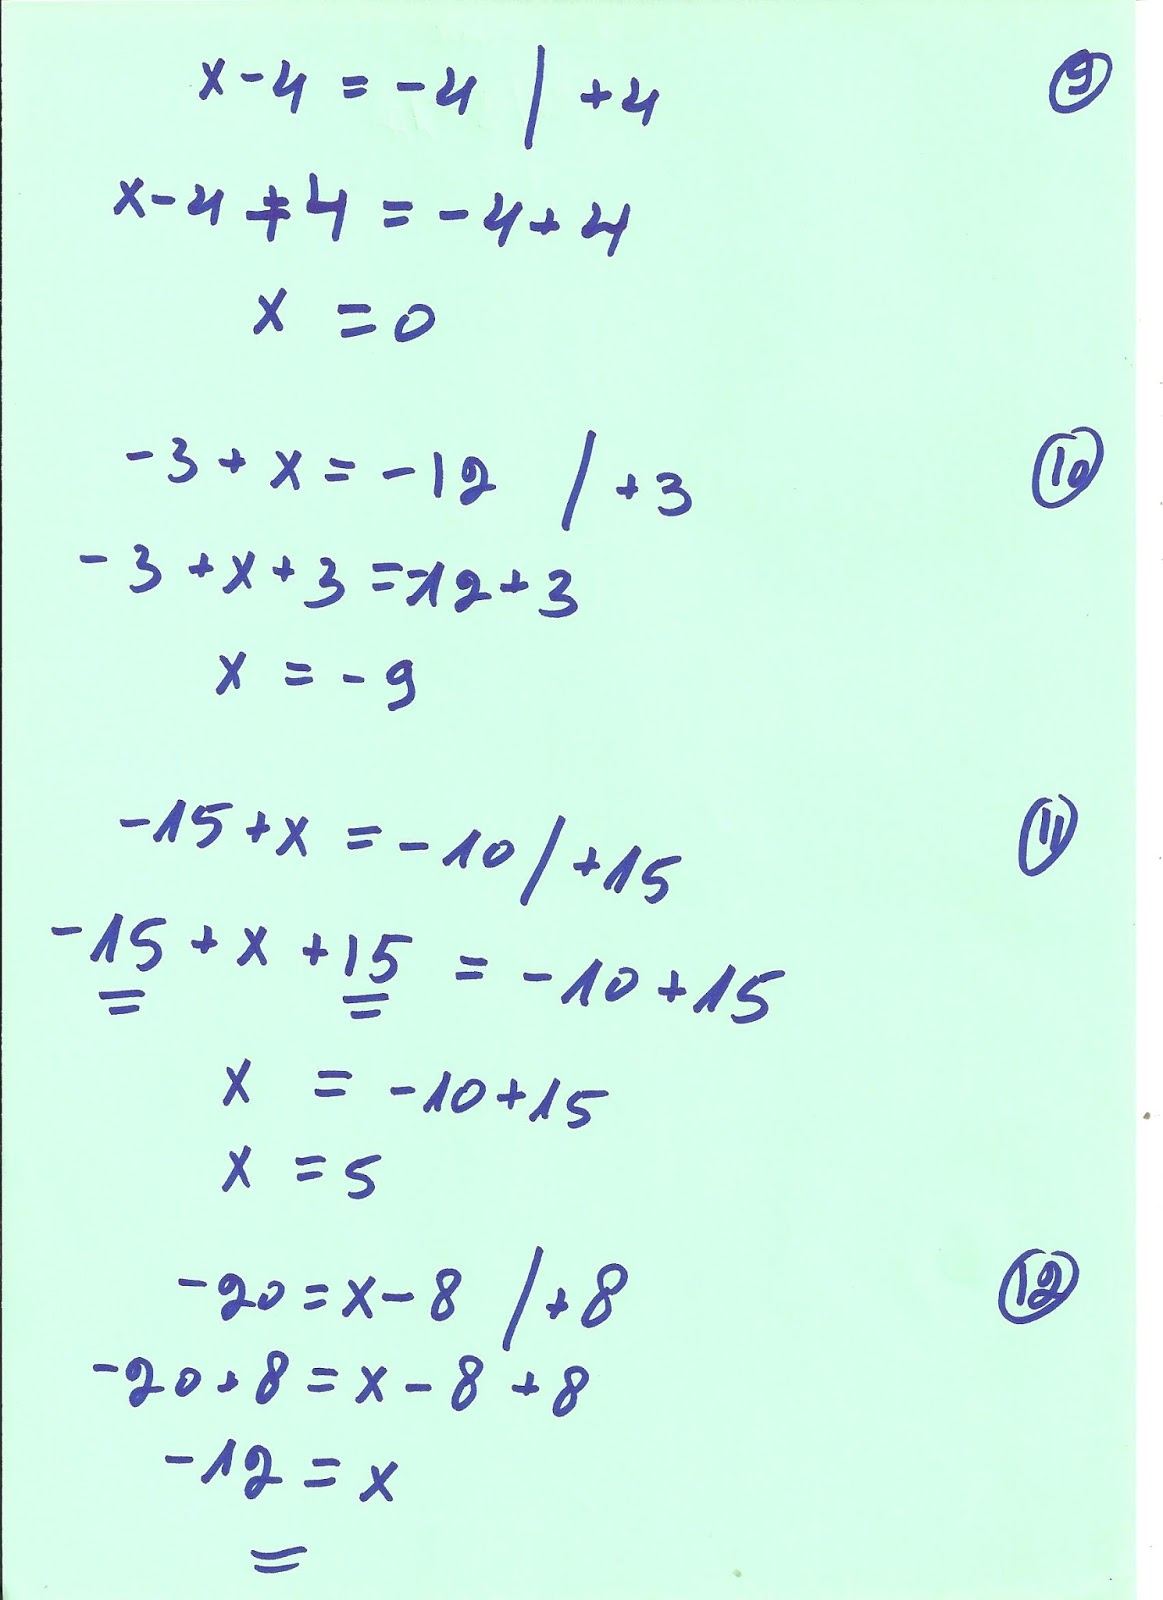 x-4 = -4 | +4 9
x-4 +4 = -4+4
x = 0
-3 + x = -12 / +3 10
-3 +x+3 =-12+3
x = -9
-15+x = -10 / +15 11
-15 + x +15 = -10+15
x = -10+15
x = 5
-20 = x-8 / +8 12
-20+8 = x-8 +8
-12 = x